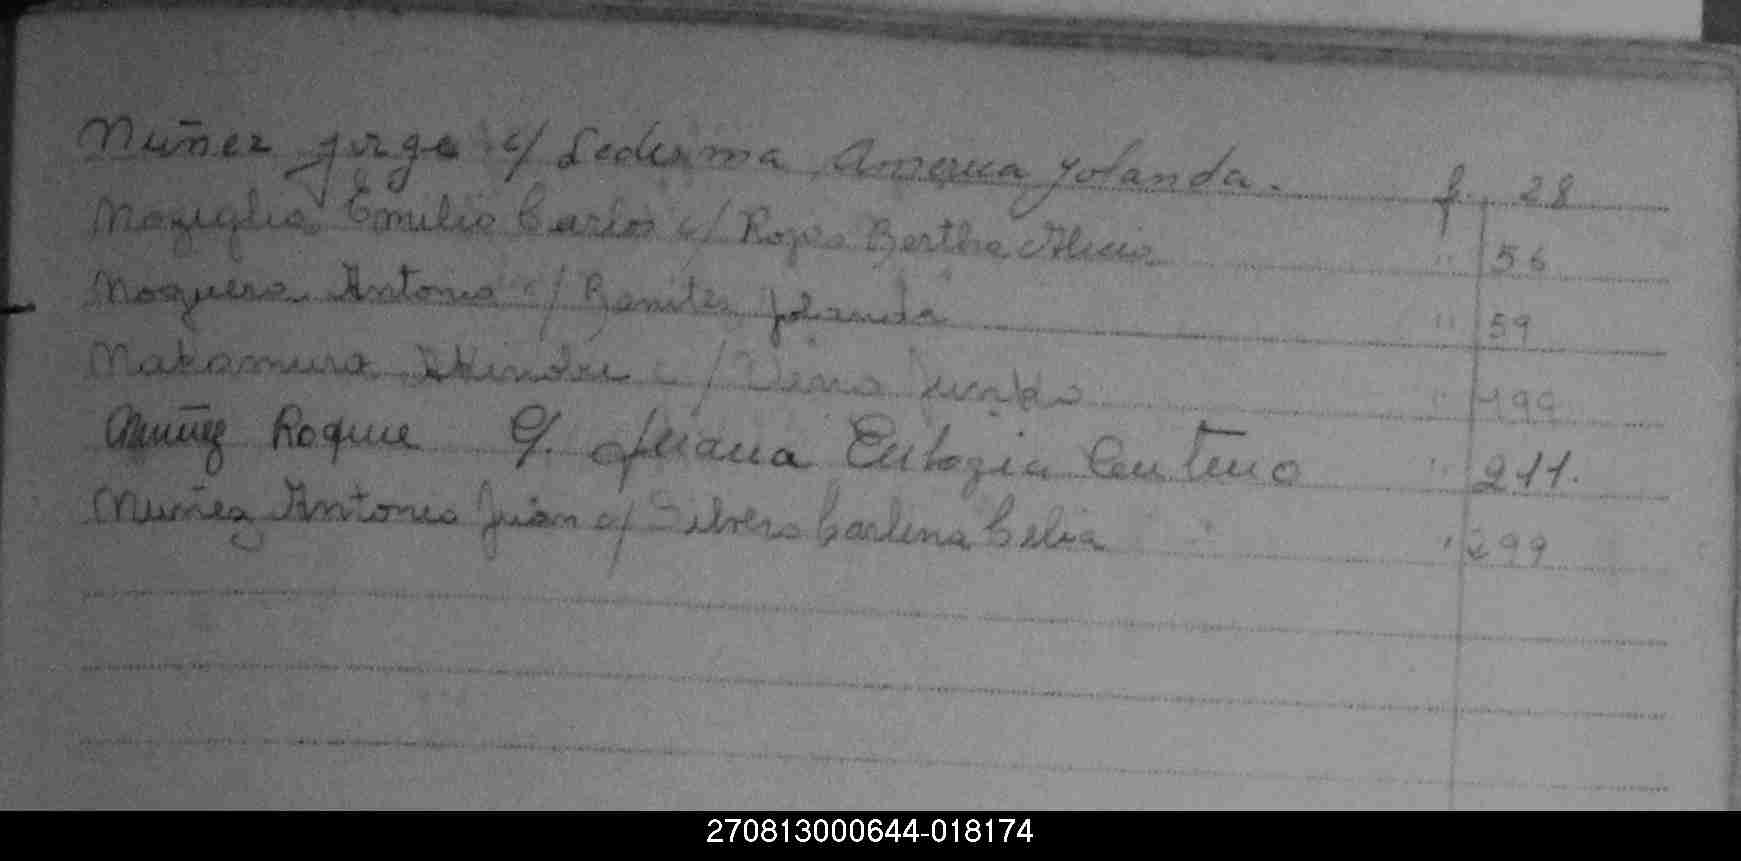 Nuñez Jorge c/ Ledesma America Yolanda. f. 28
Emilio Carlos c/ Rojas Bertha Alicia " 56
Noguera Antonio c/ Benitez Yolanda " 59
Nakamura c/ Junko " 199
Nuñez Roque c/. Juana Eulogia Centeno " 211.
Nuñez Antonio Juan c/ Silvero Carlina Celia " 299
270813000644-018174